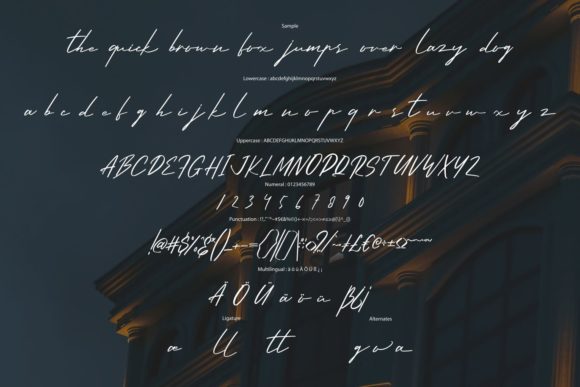 Sample
the quick brown fox jumps over lazy dog
Lowercase : abcdefghijklmnopqrstuvwxyz
a b c d e f g h i j k l m n o p q r s t u v w x y z
Uppercase : ABCDEFGHIJKLMNOPQRSTUVWXYZ
ABCDEFGHIJKLMNOPQRSTUVWXYZ
Numeral : 0123456789
1 2 3 4 5 6 7 8 9 0
Punctuation :
Multilingual : ä ö ü Ä Ö Ü ß
Ä Ö Ü ä ö ü ß
Ligature Alternates
ll tt